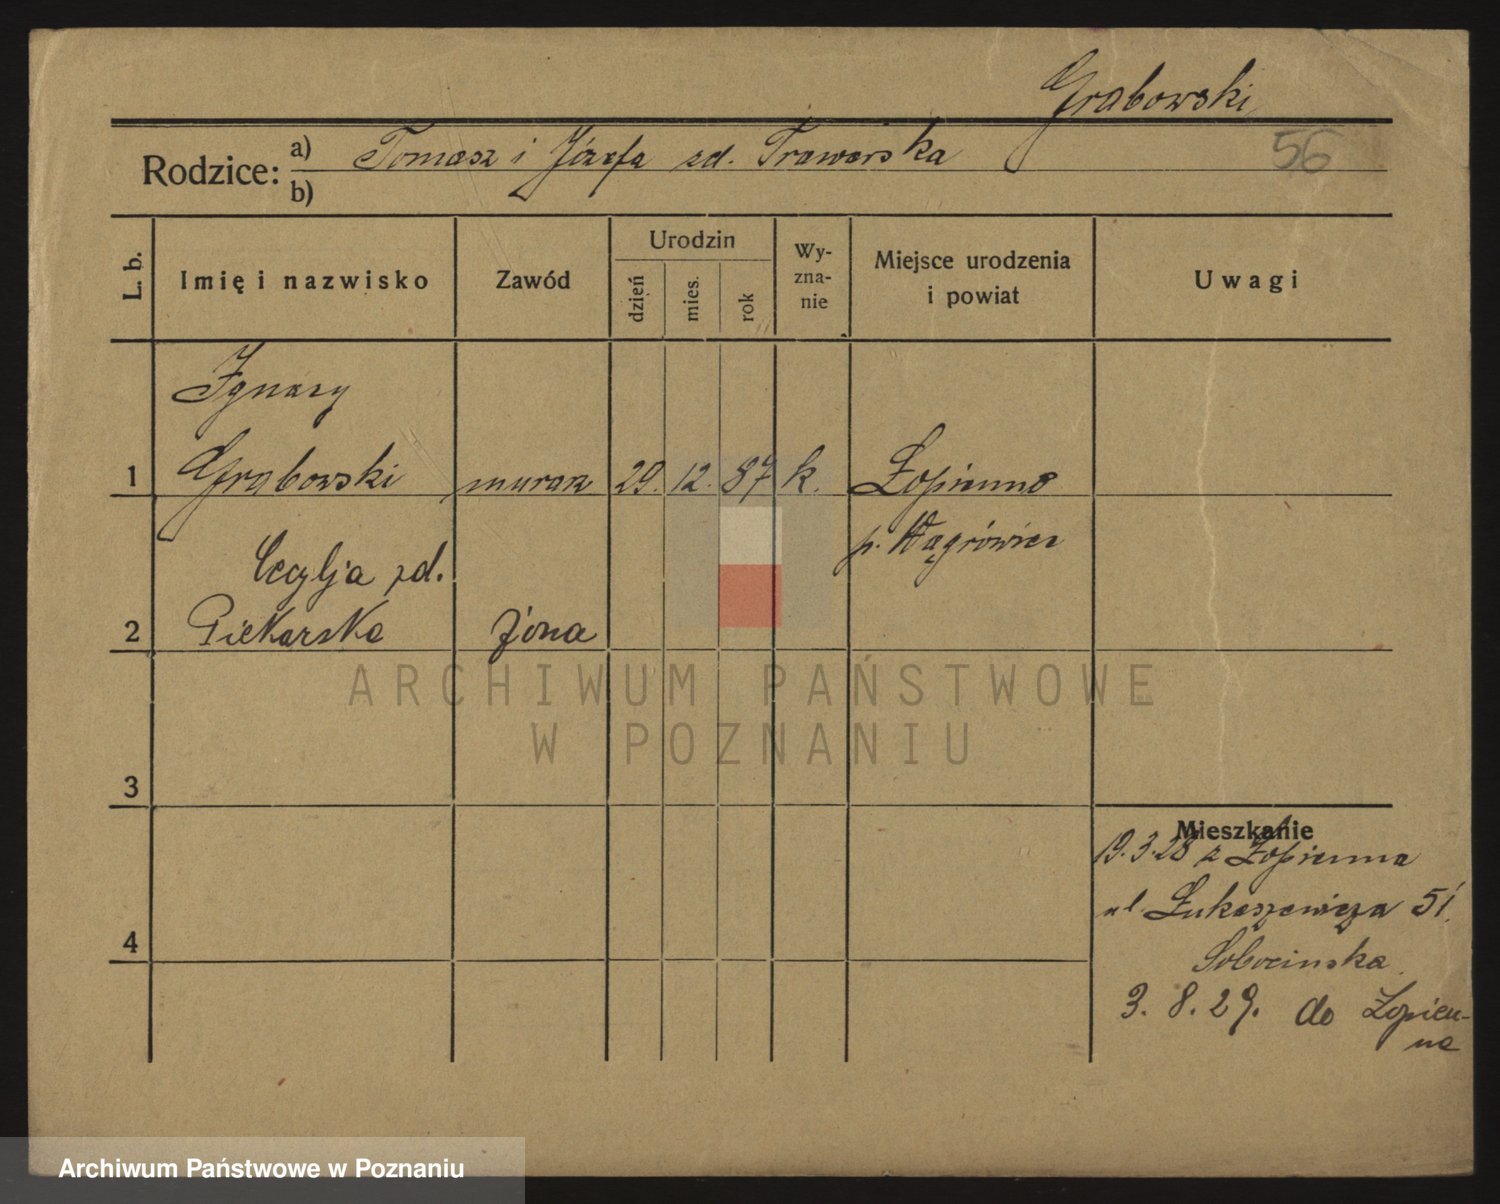 Grabowski
56
Rodzice: a) Tomasz i Józefa zd. Trawarska
b)
L. b.
Imię i nazwisko
Zawód
Urodzin
dzień
mies.
rok
Wy-
zna-
nie
Miejsce urodzenia
i powiat
Uwagi
Ignacy
1 Grabowski murarz 29. 12. 87 k. Łopienno
p. Wągrówiec
Cecylja zd.
2 Piekarska żona
ARCHIWUM PAŃSTWOWE
W POZNANIU
3
Mieszkanie
19.3.28 z Łopienna
ul. Łukaszewicza 51
4
Sobocinska
3. 8. 29. do Łopien-
na
Archiwum Państwowe w Poznaniu